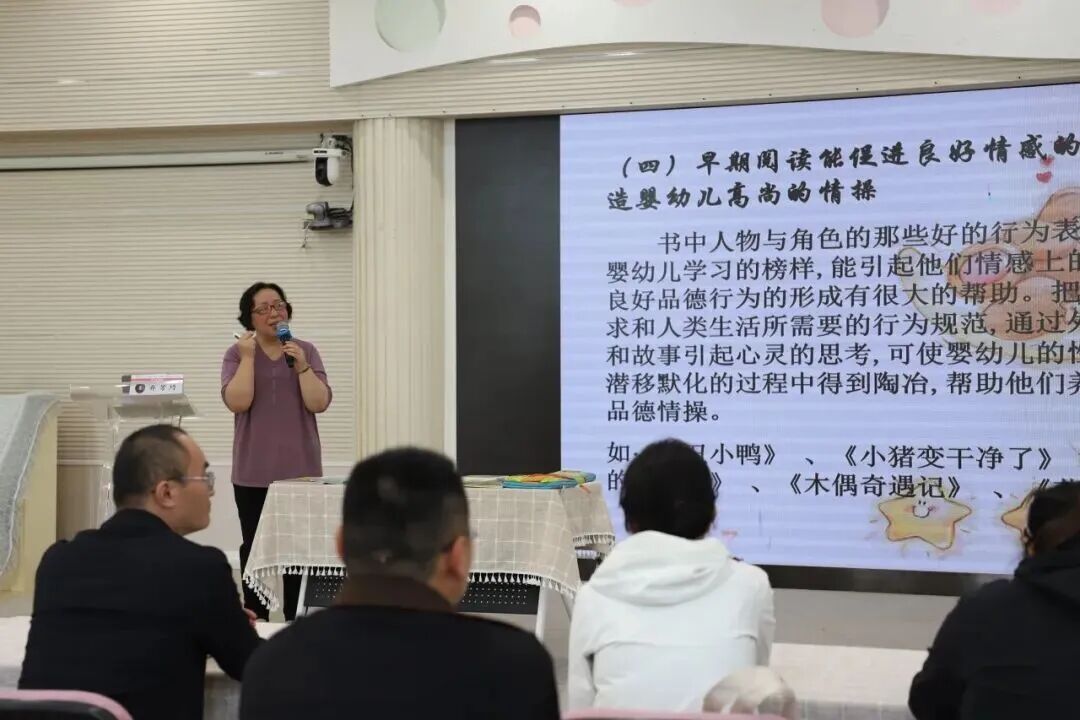 （四）早期阅读能促进良好情感的
造婴幼儿高尚的情操
书中人物与角色的那些好的行为表
婴幼儿学习的榜样,能引起他们情感上的
良好品德行为的形成有很大的帮助。把
求和人类生活所需要的行为规范,通过外
和故事引起心灵的思考,可使婴幼儿的性
潜移默化的过程中得到陶冶,帮助他们养
品德情操。
如 小鸭》 、《小猪变干净了》
的 》 、《木偶奇遇记》 、《